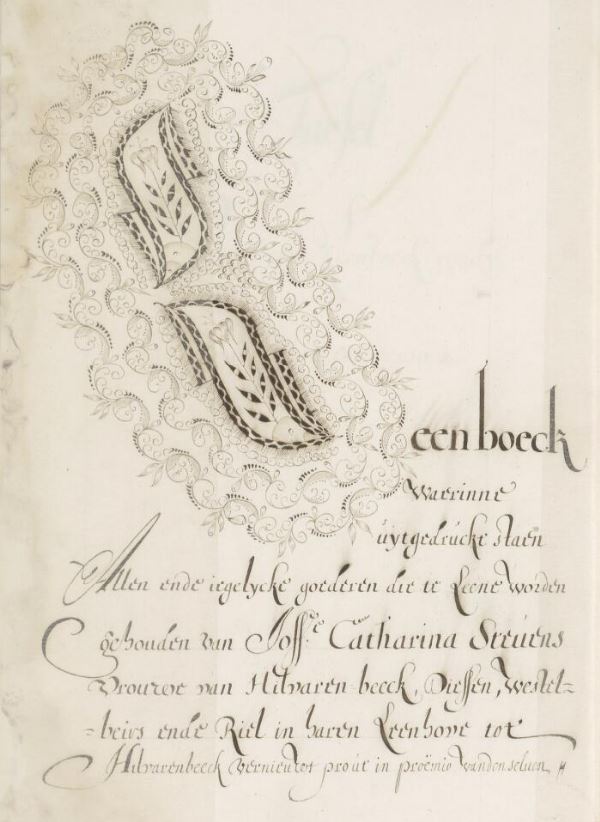 Leenboeck
Waerinne
uytgedruckt staen
Allen ende iegelycke goederen die te Leene worden
gehouden van Joffe. Catharina Steuens
Vrouwe van Hilvaren-beeck, Diessen, Westel=
=beirs ende Riel in haren Leenhove tot
Hilvarenbeeck vernieuwt prout in proëmio vanden seluen